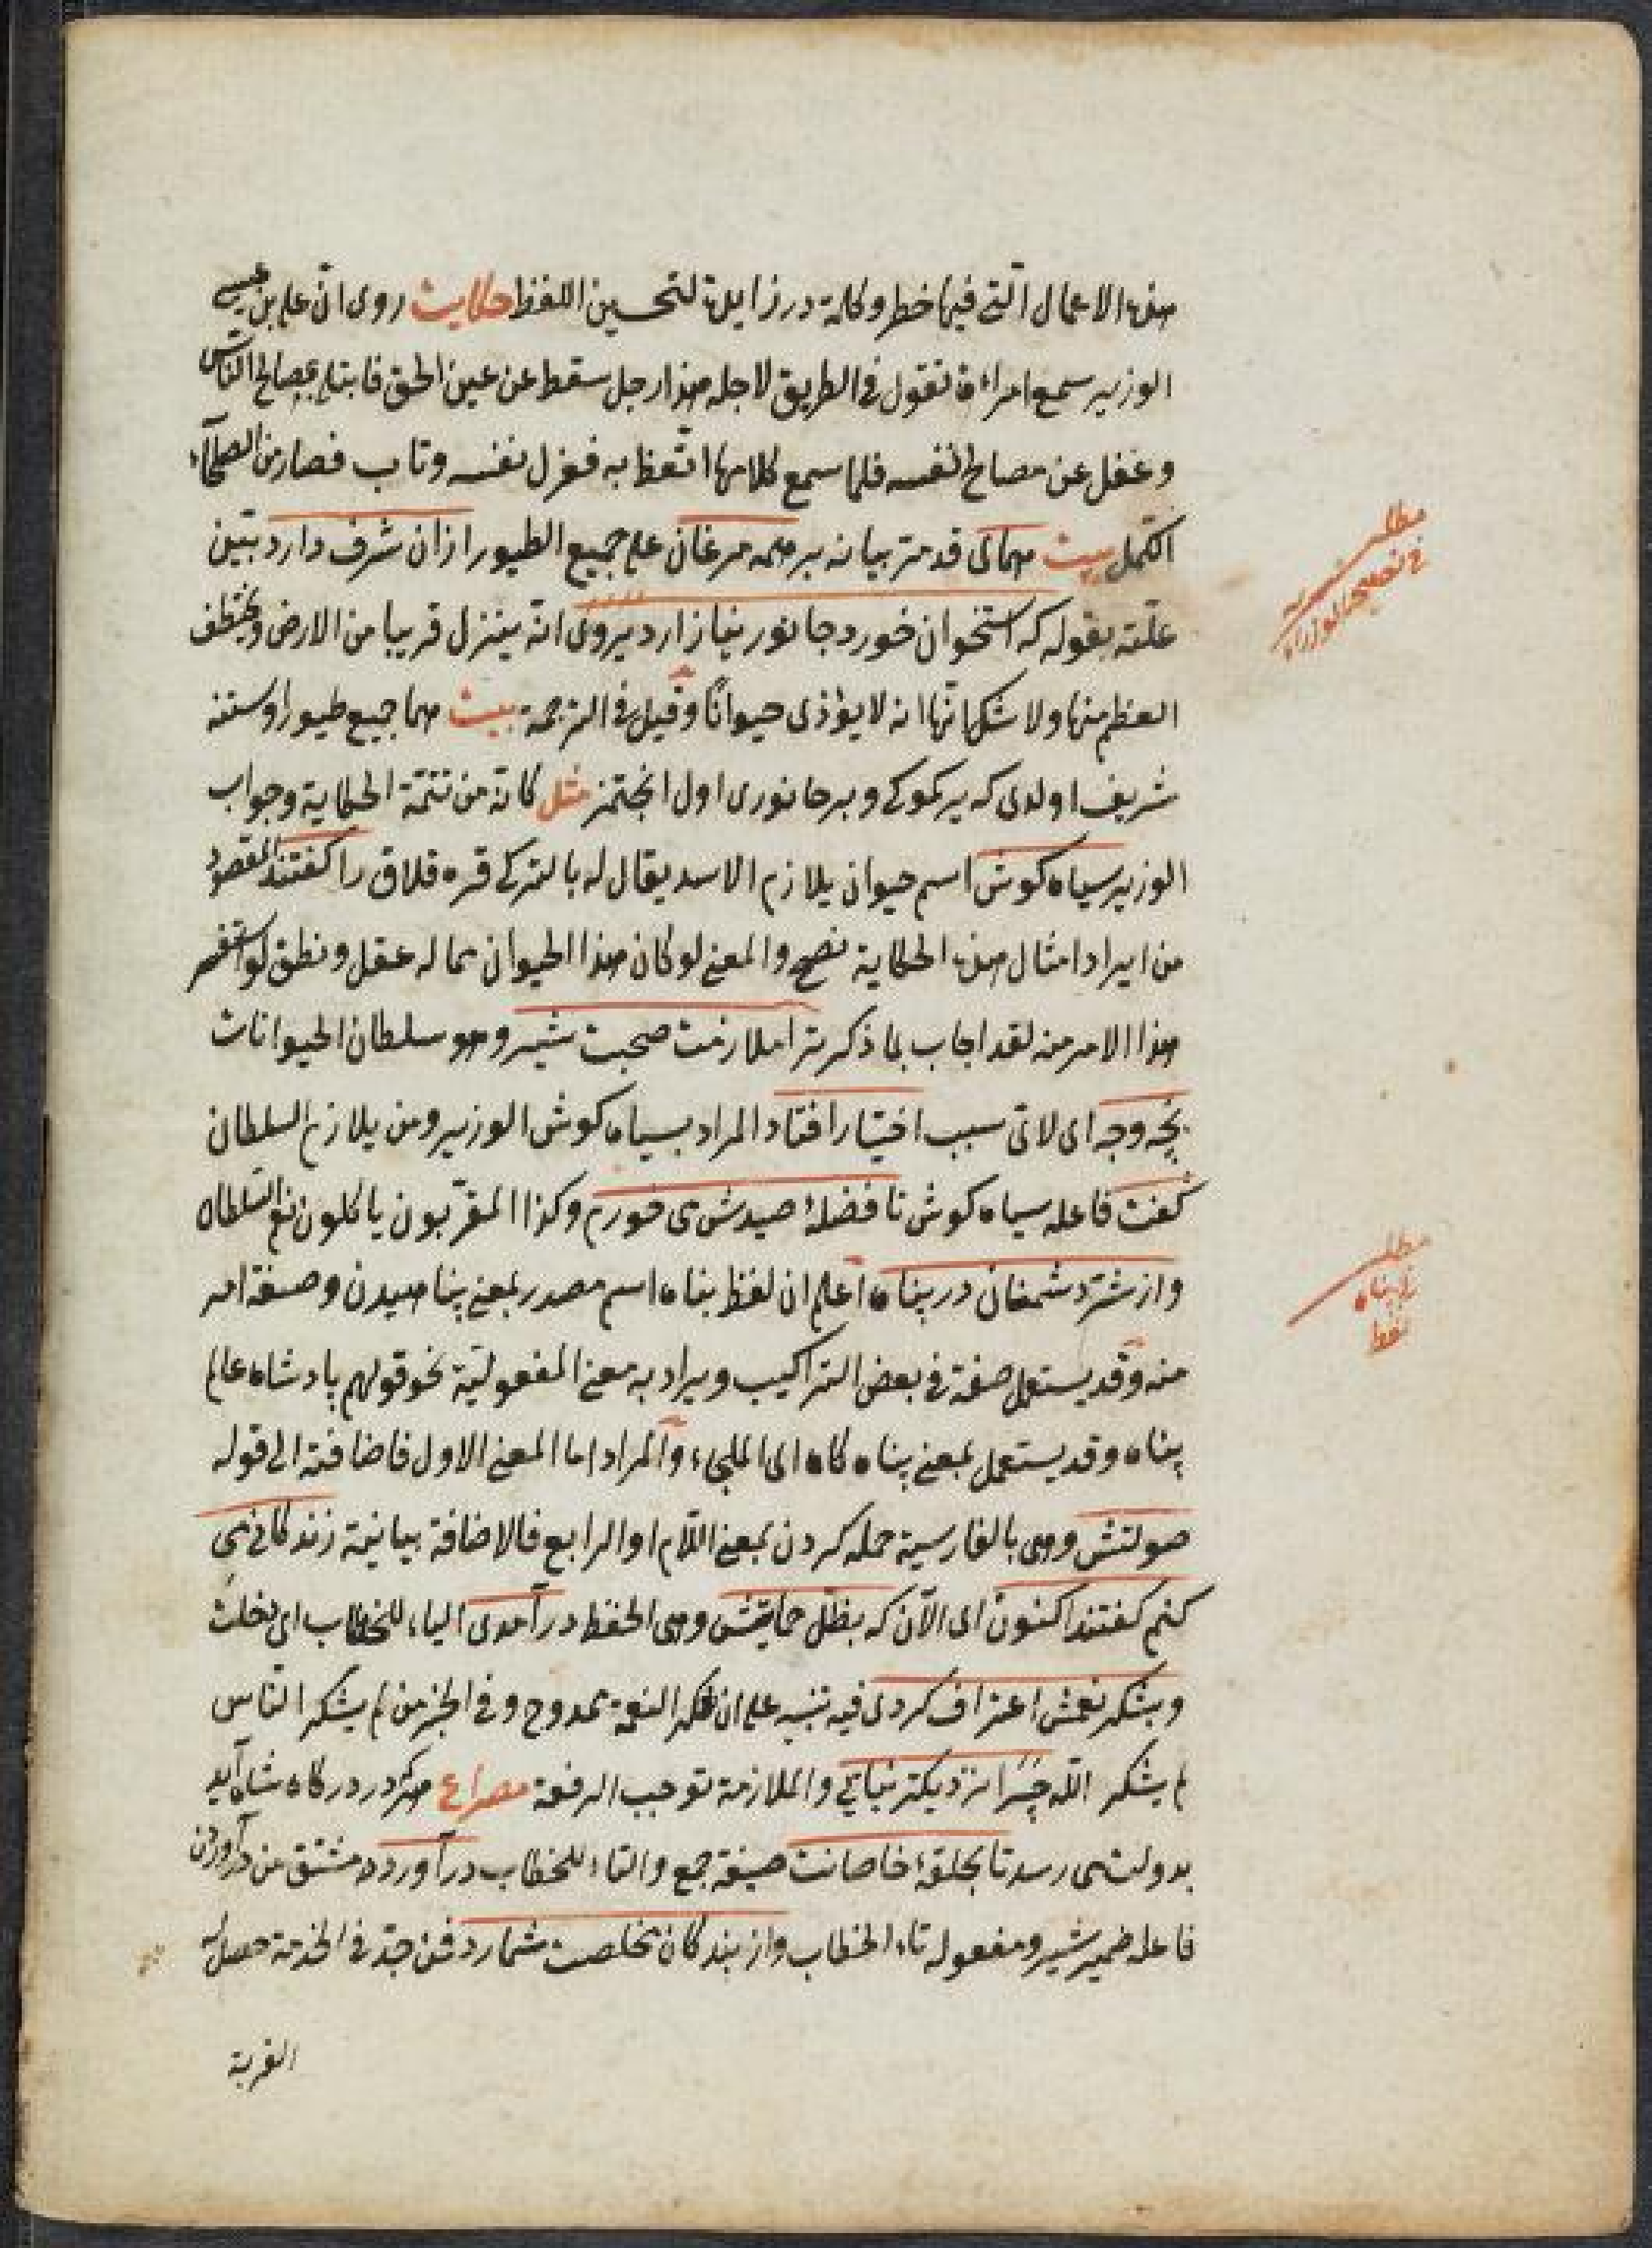 هذه الاعمال التى فيها خطر وكلمة در زايدة لتحسين اللفظ حكايت روى انّ على بن عيسى
الوزير سمع امراءة تقول فى الطريق لاجله هذا رجل سقط عن عين الحق فابتلى بمصالح الناس
وغفل عن مصالح نفسه فلما سمع كلامها اتّعظ به فعزل نفسه وتاب فصار من الصلحآء
الكمل بيت هماى قد مرّ بيانه بر همه مرغان على جميع الطيور ازان شرف دارد بيّن
علّته بقوله كه استخوان خورد جانور نيازارد يروى انّه ينزل قريبا من الارض ويختطف
العظم منها ولا شك انه لا يؤذى حيوانًا وقيل فى الترجمة بيت هما جميع طيور اوستنه
شريف اولدى كه ير كموكى وبر جانورى اول انجتمز مثل كانّه من تتمّة الحكاية وجواب
الوزير سياه كوش اسم حيوان يلازم الاسد يقال له بالتركى قره قلاق را كفتند المقصود
من ايراد امثال هذه الحكاية نصح والمعنى لو كان هذا الحيوان مما له عقل ونطق لو استفسر
هذا الامر منه لقد اجاب بما ذكر ترا ملازمت صحبت شير وهو سلطان الحيوانات
بچه وجه اى لاىّ سبب اختيار افتاد المراد بسياه كوش الوزير ومن يلازم السلطان
كفت فاعله سياه كوش تا فضلهٔ صيدش مى خورم وكذا المقرّبون ياكلون نعم السلطان
واز شرّ دشمنان در پناه اعلم ان لفظ پناه اسم مصدر بمعنى پناهيدن وصيغة امر
منه وقد يستعمل صفة فى بعض التراكيب ويراد به معنى المفعوليّة نحو قولهم پادشاه عالم
پناه وقد يستعمل بمعنى پناه كاه اى الملجاء والمراد اما المعنى الاول فاضافته الى قوله
صولتش وهى بالفارسية حمله كردن بمعنى اللّام او الرابع فالاضافة بيانيّة زندكانى مى
كنم كفتند اكنون اى الآن كه بظلّ حمايتش وهى الحفظ درآمدى الياء للخطاب اى دخلت
وبشكر نعمتش اعتراف كردى فيه تنبيه على ان شكر النعمة ممدوح وفى الخبر من لم يشكر الناس
لم يشكر اللّه چرا نزديكتر نيايى والملازمة توجب الرفعة مصراع هركه در دركاه شاه آيد
بدولت مى رسد تا بحلقهٔ خاصانت صيغة جمع والتاء للخطاب درآورد مشتق من درآوردن
فاعله ضمير شير ومفعوله تاء الخطاب واز بندكان مخلصت شمارد فمن جدّ فى الخدمة حصل له
القربة
مطلب
فى نصيحة الوزراء
مطلب
پناه
لفظ